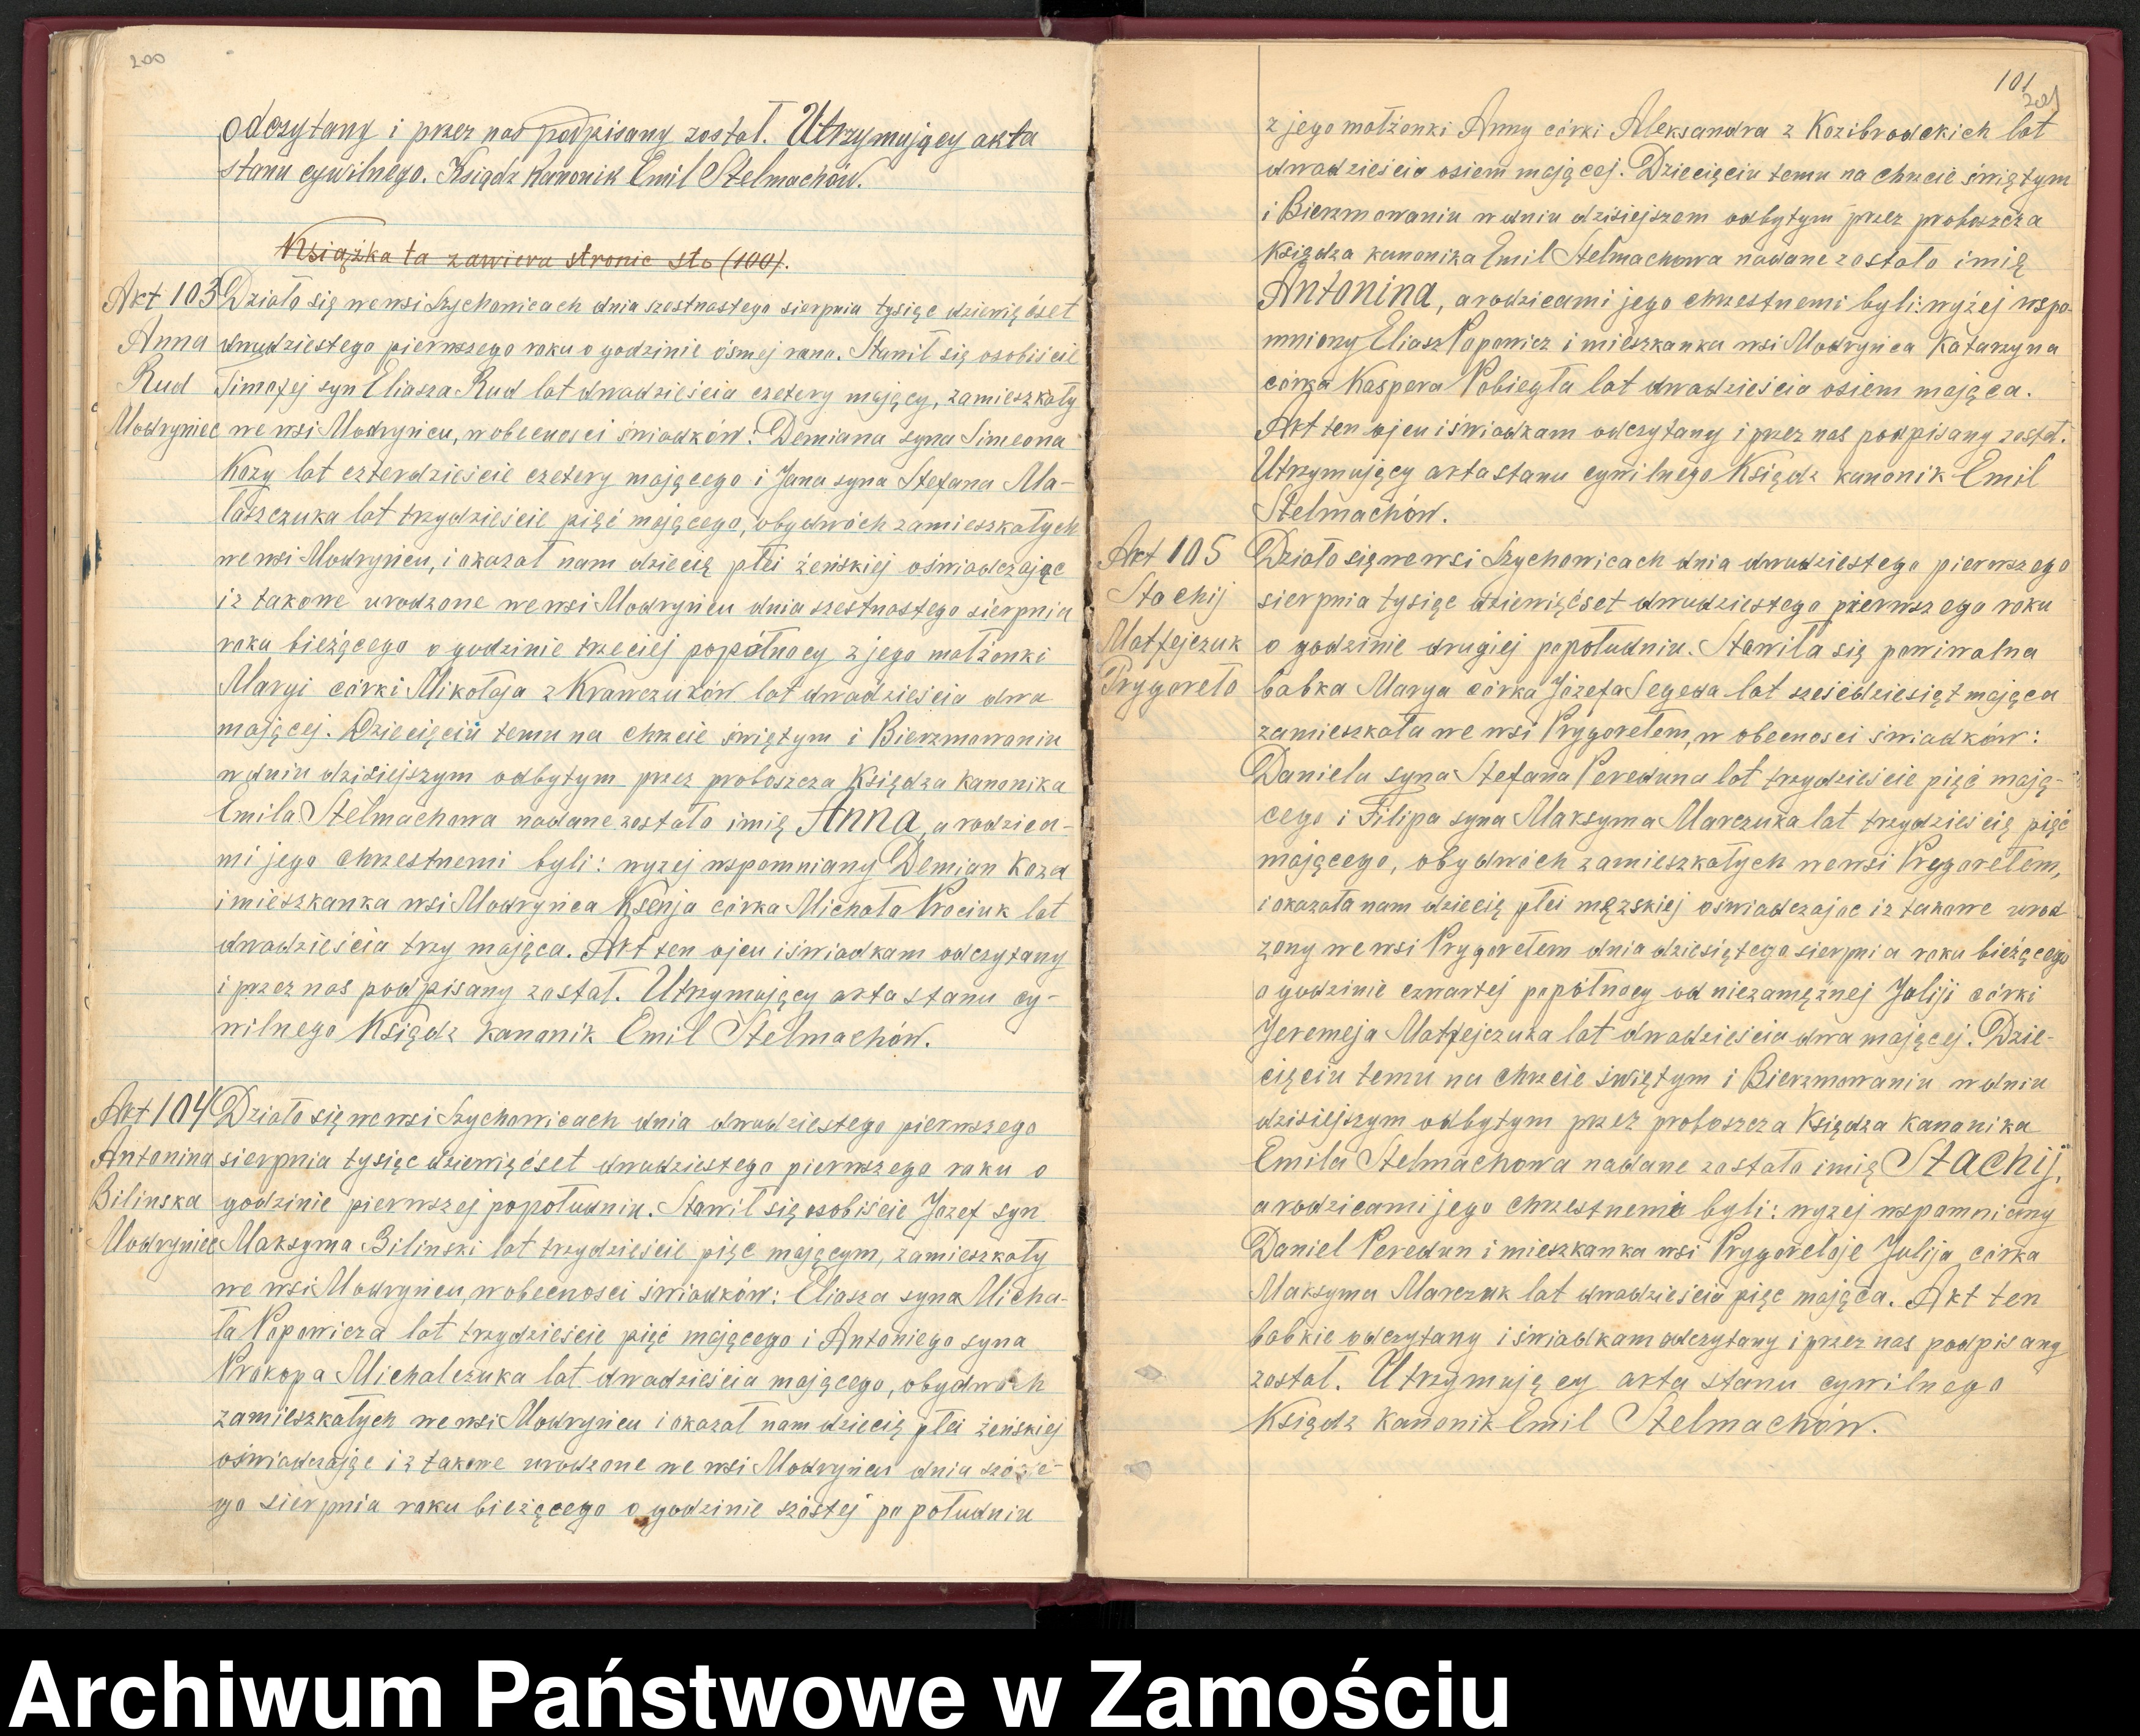 200
odczytany i przez nas podpisany został. Utrzymujący akta
stanu cywilnego. Ksiądz Kanonik Emil Stelmachów.
Książka ta zawiera stronic sto (100).
Akt 103
Anna
Rud
Modryniec
Działo się we wsi Szychowicach dnia szestnastego sierpnia tysiąc dziewięćset
dwudziestego pierwszego roku o godzinie ósmej rano. Stawił się osobiście
Timofej syn Eliasza Rud lat dwadzieścia cztery mający, zamieszkały
we wsi Modryńcu, w obecności świadków: Demiana syna Simeona
Kozy lat czterdzieście cztery mającego i Jana syna Stefana Ma-
łaszczuka lat trzydzieście pięć mającego, obydwóch zamieszkałych
we wsi Modryńcu, i okazał nam dziecię płci żeńskiej oświadczając
iż takowe urodzone we wsi Modryńcu dnia szestnastego sierpnia
roku bieżącego o godzinie trzeciej popółnocy z jego małżonki
Maryi córki Mikołaja z Krawczuków lat dwadzieścia dwa
mającej. Dziecięciu temu na chrzcie świętym i Bierzmowaniu
w dniu dzisiejszym odbytym przez proboszcza Księdza kanonika
Emila Stelmachowa nadane zostało imię Anna, a rodzica-
mi jego chrzestnemi byli: wyżej wspomniany Demian Koza
i mieszkanka wsi Modryńca Ksenja córka Michała Prociuk lat
dwadzieścia trzy mająca. Akt ten ojcu i świadkam odczytany
i przez nas podpisany został. Utrzymujący akta stanu cy-
wilnego Ksiądz kanonik Emil Stelmachów.
Akt 104
Antonina
Bilinska
Modryniec
Działo się we wsi Szychowicach dnia dwudziestego pierwszego
sierpnia tysiąc dziewięćset dwudziestego pierwszego roku o
godzinie pierwszej popołudniu. Stawił się osobiście Józef syn
Maksyma Bilinski lat trzydzieście pięć mającym, zamieszkały
we wsi Modryńcu, w obecności świadków: Eliasza syna Micha-
ła Popowicza lat trzydzieście pięć mającego i Antoniego syna
Prokopa Michalczuka lat dwadzieścia mającego, obydwóch
zamieszkałych we wsi Modryńcu i okazał nam dziecię płci żeńskiej
oświadczając iż takowe urodzone we wsi Modryńcu dnia
go sierpnia roku bieżącego o godzinie szóstej po południu
101
201
z jego małżonki Anny córki Aleksandra z Kozibrodckich lat
dwadzieścia osiem mającej. Dziecięciu temu na chrzcie świętym
i Bierzmowaniu w dniu dzisiejszem odbytym przez proboszcza
Księdza kanonika Emil Stelmachowa nadane zostało imię
Antonina, a rodzicami jego chrzestnemi byli: wyżej wspo-
mniony Eliasz Popowicz i mieszkanka wsi Modryńca Katarzyna
córka Kaspera Pobiegła lat dwadzieścia osiem mająca.
Akt ten ojcu i świadkam odczytany i przez nas podpisany został.
Utrzymujący akta stanu cywilnego Ksiądz kanonik Emil
Stelmachów.
Akt 105
Stachij
Matfejczuk
Prygoreło
Działo się we wsi Szychowicach dnia dwudziestego pierwszego
sierpnia tysiąc dziewięćset dwudziestego pierwszego roku
o godzinie drugiej popołudniu. Stawiła się powiwalna
babka Marya córka Józefa Segeda lat sześćdziesiąt mająca
zamieszkała we wsi Prygorełem, w obecności świadków:
Daniela syna Stefana Pereduna lat trzydzieście pięć mają-
cego i Filipa syna Maksyma Marczuka lat trzydzieście pięć
mającego, obydwóch zamieszkałych we wsi Prygorełem,
i okazała nam dziecię płci męzskiej oświadczając iż takowe urod
zony we wsi Prygorełem dnia dziesiątego sierpnia roku bieżącego
o godzinie czwartej popółnocy od niezamężnej Juliji córki
Jeremeja Matfejczuka lat dwadzieścia dwa mającej. Dzie-
cięciu temu na chrzcie świętym i Bierzmowaniu w dniu
dzisiejszym odbytym przez proboszcza Księdza Kanonika
Emila Stelmachowa nadane zostało imię Stachij,
a rodzicami jego chrzestnemi byli: wyżej wspomniany
Daniel Peredun i mieszkanka wsi Prygorełoje Julija córka
Maksyma Marczuk lat dwadzieścia pięc mająca. Akt ten
babkie odczytany i świadkam odczytany i przez nas podpisany
został. Utrzymujący akta stanu cywilnego
Ksiądz Kanonik Emil Stelmachów.
Archiwum Państwowe w Zamościu